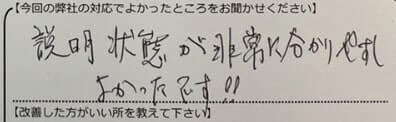 【今回の弊社の対応でよかったところをお聞かせください】
説明状態が非常に分かりやすし
よかったです!!
【改善した方がいい所を教えて下さい】